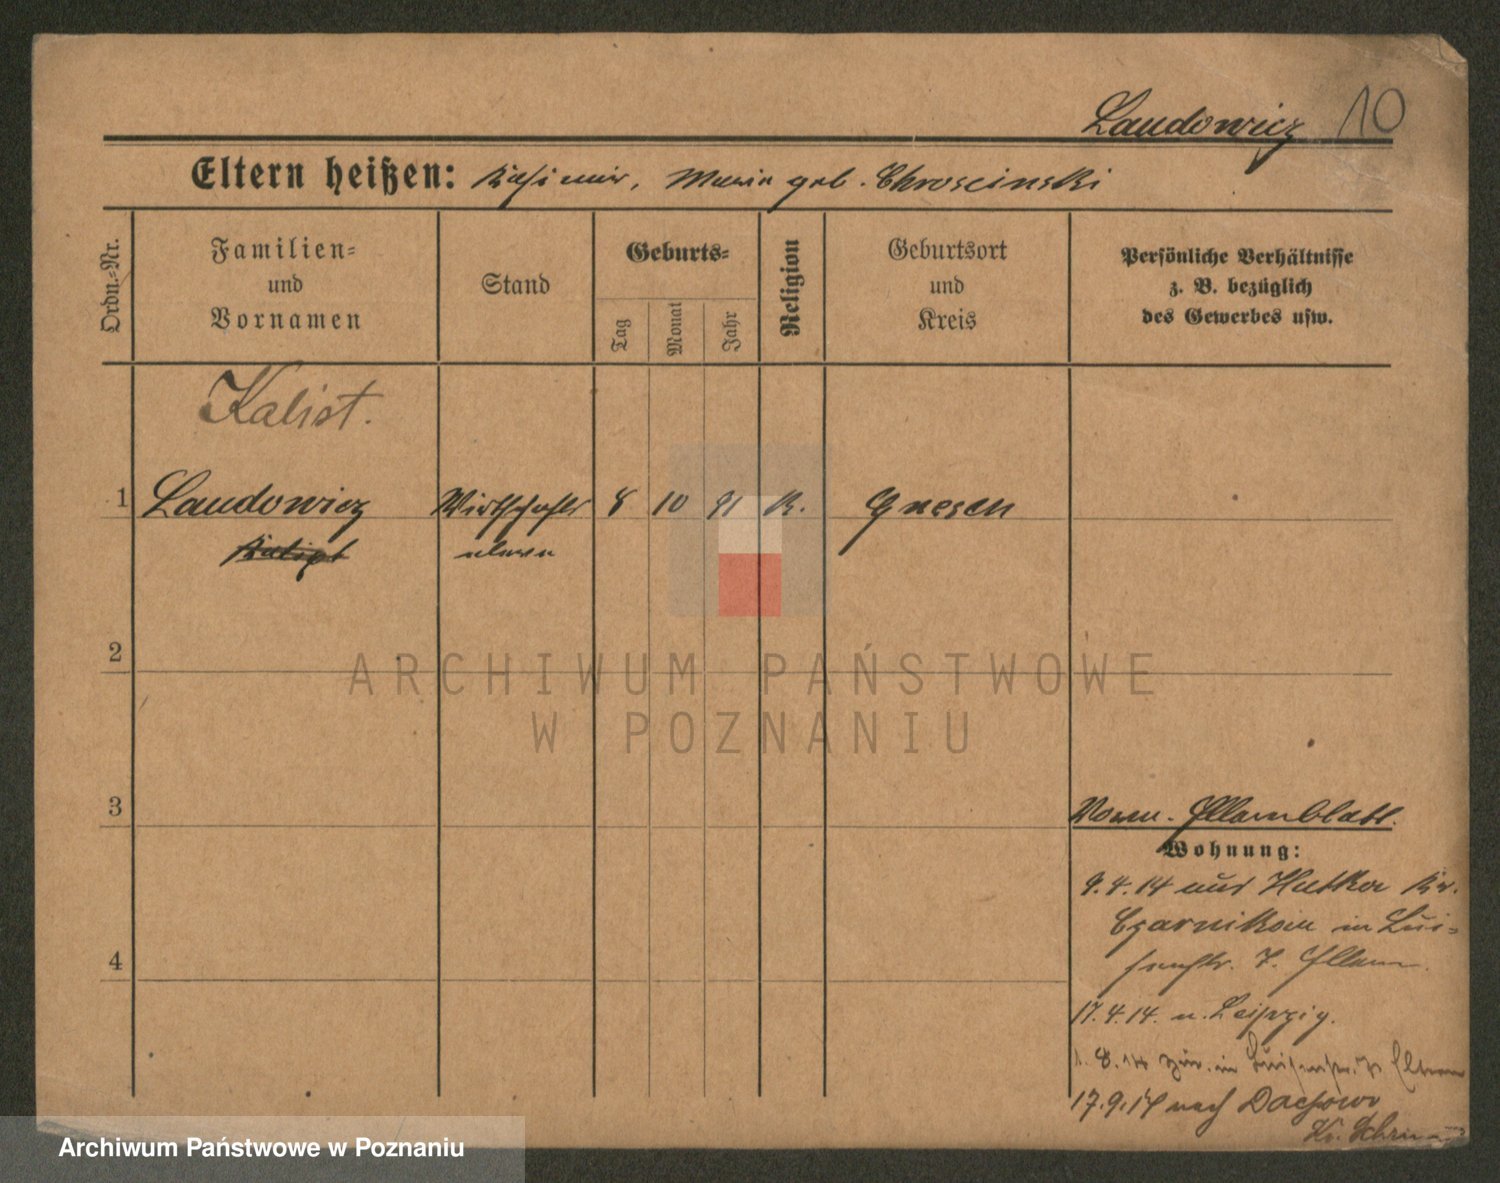 Laudowicz 10
Eltern heißen: Kasimir, Maria geb. Chroscinski
Ordn.-Nr.
Familien-
und
Vornamen
Stand
Geburts-
Tag
Monat
Jahr
Religion
Geburtsort
und
Kreis
Persönliche Verhältnisse
z. B. bezüglich
des Gewerbes usw.
Kalist.
1 Laudowicz Wirtschafts 8 10 91 K. Gnesen
Kalixt eleve
2
ARCHIWUM PAŃSTWOWE
W POZNANIU
3
Vorm. Elternblatt.
Wohnung:
9.4.14 aus Hutka Kr.
Czarnikau in Lui-
senstr. 7. Eltern.
4
17.4.14. n. Leipzig.
1.8.14 zur. in Luisenstr. 7 Eltern
17.9.14 nach Dachowo
Kr. Schrimm
Archiwum Państwowe w Poznaniu